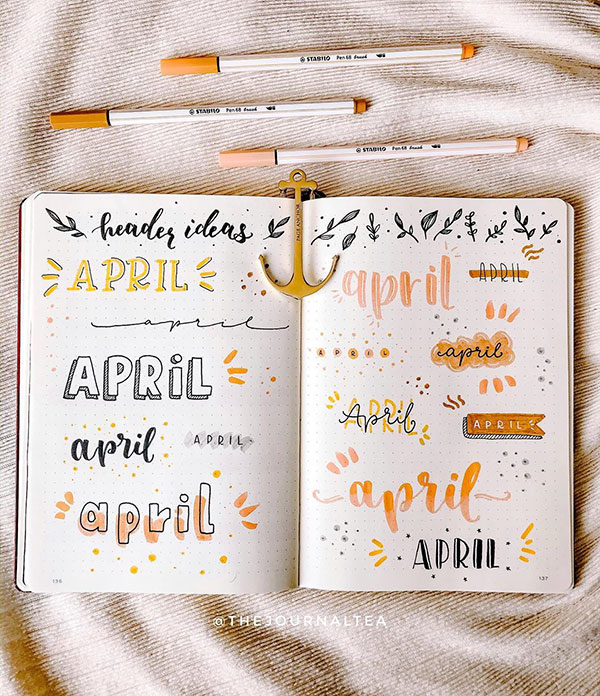 STABILO Pen 68 brush
STABILO Pen 68 brush
STABILO Pen 68 brush
PAGE ANCHOR
header ideas
APRIL
april
APRiL
april
APRIL
april
136
april
APRIL
APRIL
april
APRIL
April
APRIL
april
APRIL
137
@THEJOURNALTEA